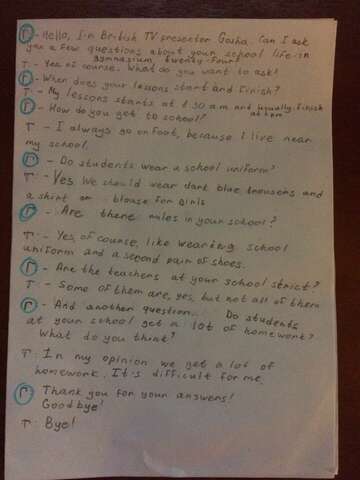 Г - Hello, I'm British TV presenter Gosha. Can I ask
you a few questions about your school life in
gymnasium, twenty-four?
T - Yes of course. What do you want to ask?
Г - When does your lessons start and finish?
T - My lessons starts at 8.30 a.m and usually finish
Г - How do you get to school?
T - I always go on foot, because I live near
my school.
Г - Do students wear a school uniform?
T - Yes We should wear dark blue trousers and
a shirt or blouse for girls
Г - Are there rules in your school?
T - Yes, of course, like wearing school
uniform and a second pair of shoes.
Г - Are the teachers at your school strict?
T - Some of them are, yes, but not all of them
Г - And another question... Do students
at your school get a lot of homework?
What do you think?
T: In my opinion we get a lot of
homework. It's difficult for me.
Г Thank you for your answers!
Goodbye!
T: Bye!